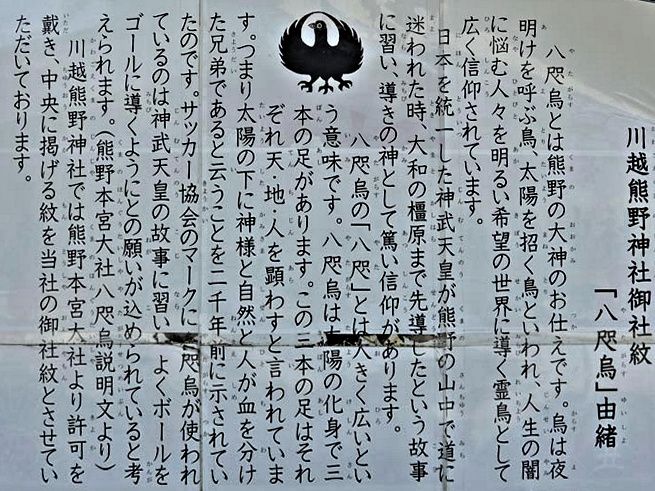 川越熊野神社御社紋
「八咫烏」由緒
八咫烏とは熊野の大神のお仕えです。烏は夜
明けを呼ぶ鳥、太陽を招く鳥といわれ、人生の闇
に悩む人々を明るい希望の世界に導く霊鳥として
広く信仰されています。
日本を統一した神武天皇が熊野の山中で道に
迷われた時、大和の橿原まで先導したという故事
に習い、導きの神として篤い信仰があります。
八咫烏の「八咫」とは大きく広いとい
う意味です。八咫烏は太陽の化身で三
本の足があります。この三本の足はそれ
ぞれ天・地・人を顕わすと言われていま
す。つまり太陽の下に神様と自然と人が血を分け
た兄弟であると云うことを二千年前に示されてい
たのです。サッカー協会のマークに八咫烏が使われ
ているのは神武天皇の故事に習い、よくボールを
ゴールに導くようにとの願いが込められていると考
えられます。(熊野本宮大社八咫烏説明文より)
川越熊野神社では熊野本宮大社より許可を
戴き、中央に掲げる紋を当社の御社紋とさせてい
ただいております。